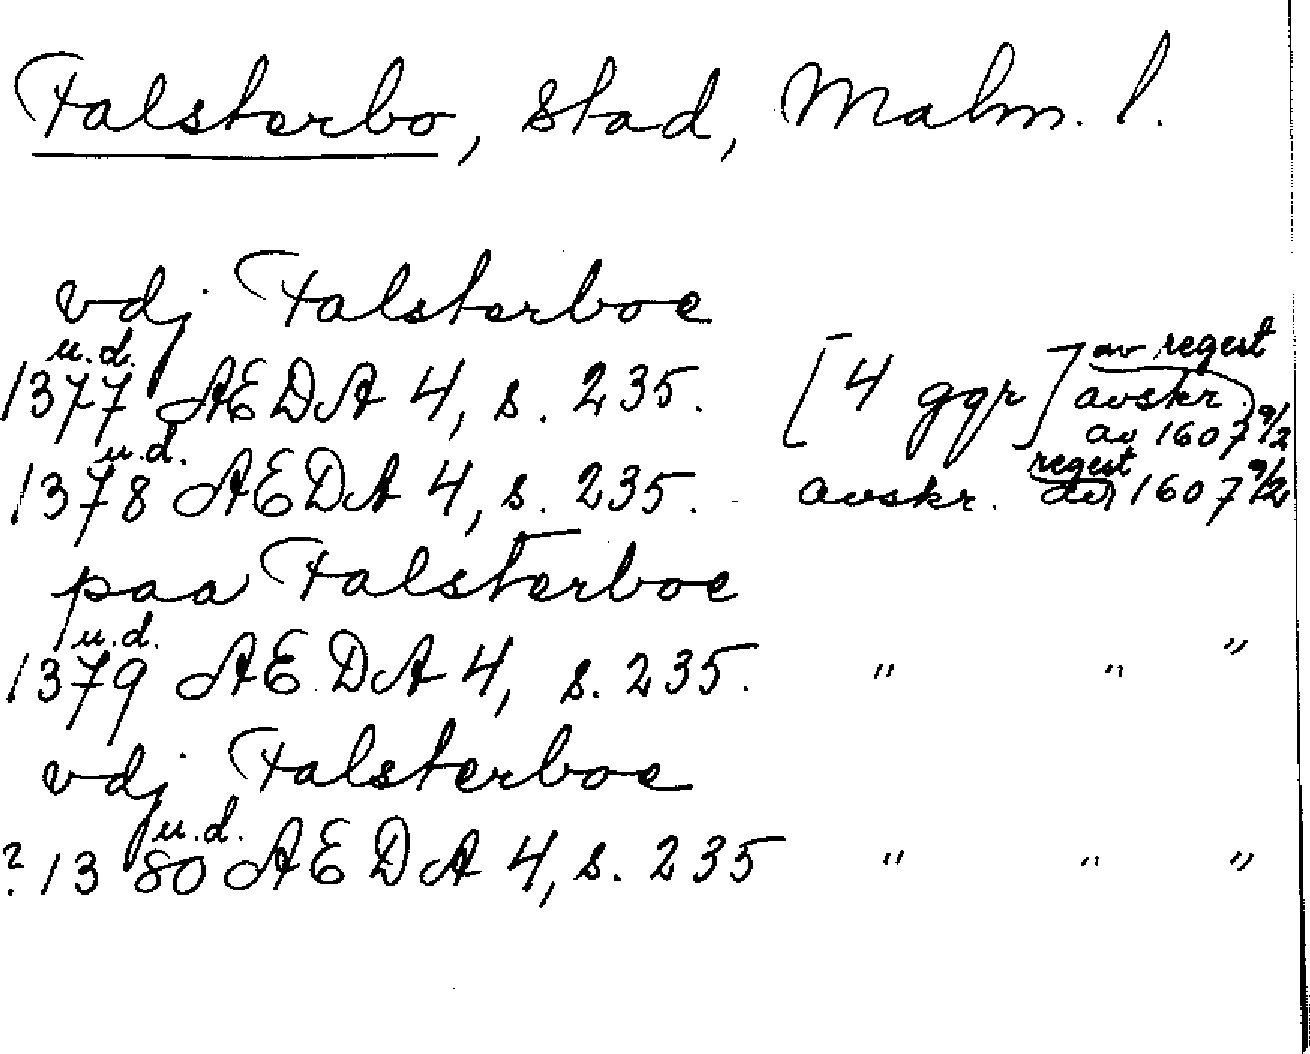 Falsterbo, stad, Malm. l.
vdj Falsterboe
1377 u.d. AEDA 4, s. 235. [4 ggr] av regest avskr. av 1607 9/2
1378 u.d. AEDA 4, s. 235. avskr. regest 1607 9/2
paa Falsterboe
1379 u.d. AEDA 4, s. 235. " " "
vdj Falsterboe
? 1380 u.d. AEDA 4, s. 235 " " "